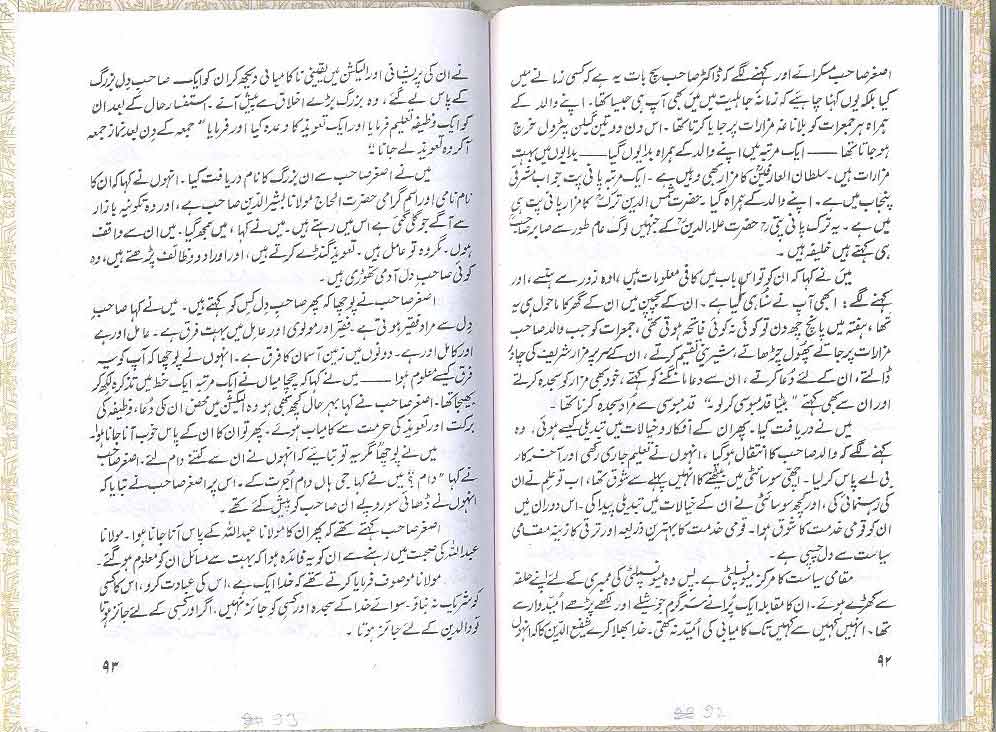 اصغر صاحب مسکرائے اور کہنے لگے کہ ڈاکٹر صاحب سچ بات یہ ہے کہ کسی زمانے میں
کیا بلکہ یوں کہنا چاہئے کہ زمانہ جاہلیت میں میں بھی آپ ہی جیسا تھا۔ اپنے والد کے
ہمراہ ہر جمعرات کو بلا ناغہ مزارات پر جایا کرتا تھا۔ اس دن دو تین گیلن پیٹرول خرچ
ہو جاتا تھا ــــــ ایک مرتبہ میں اپنے والد کے ہمراہ بدایوں گیا ــــــ بدایوں میں بہت
مزارات ہیں۔ سلطان العارفین کا مزار بھی وہیں ہے۔ ایک مرتبہ پانی پت جو اب مشرقی
پنجاب میں ہے۔ اپنے والد کے ہمراہ گیا۔ حضرت شمس الدین ترک کا مزار پانی پت ہی
میں ہے۔ یہ ترک پانی پتی حضرت علاء الدین کے جنہیں لوگ عام طور سے صابر صاحب
ہی کہتے ہیں خلیفہ ہیں۔
میں نے کہا کہ ان کو تو اس باب میں کافی معلومات ہیں، وہ زور سے ہنسے، اور
کہنے لگے: ابھی آپ نے سنا ہی کیا ہے۔ ان کے بچپن میں ان کے گھر کا ماحول ہی یہ
تھا، ہفتہ میں پانچ چھ دن تو کوئی نہ کوئی فاتحہ ہوتی تھی، جمعرات کو جب والد صاحب
مزارات پر جاتے پھول چڑھاتے، شیرینی تقسیم کرتے، ان کے سر پر مزار شریف کی چادر
ڈالتے، ان کے لئے دعا کرتے، ان سے دعا مانگنے کو کہتے، خود بھی مزار کو سجدہ کرتے
اور ان سے بھی کہتے "بیٹا قدمبوسی کر لو۔" قدمبوسی سے مراد سجدہ کرنا تھا۔
میں نے دریافت کیا۔ پھر ان کے افکار و خیالات میں تبدیلی کیسے ہوئی، وہ
کہنے لگے کہ والد صاحب کا انتقال ہو گیا، انہوں نے تعلیم جاری رکھی اور آخر کار
بی اے پاس کر لیا۔ اچھی سوسائٹی میں بیٹھنے کا انہیں پہلے سے شوق تھا، اب تو علم نے ان
کی رہنمائی کی، اور کچھ سوسائٹی نے ان کے خیالات میں تبدیلی پیدا کی۔ اس دوران میں
ان کو قومی خدمت کا شوق ہوا۔ قومی خدمت کا بہترین ذریعہ اور ترقی کا زینہ مقامی
سیاست سے دلچسپی ہے۔
مقامی سیاست کا مرکز میونسپلٹی ہے۔ بس وہ میونسپلٹی کی ممبری کے لئے اپنے حلقہ
سے کھڑے ہوئے۔ ان کا مقابلہ ایک پرانے سرگرم جوشیلے اور لکھے پڑھے امیدوار سے
تھا۔ انہیں کہیں سے کہیں تک کامیابی کی امید نہ تھی۔ خدا بھلا کرے شفیع الدین کا کہ انہوں
۹۲
92
نے ان کی پریشانی اور الیکشن میں یقینی ناکامیابی دیکھ کر ان کو ایک صاحب دل بزرگ
کے پاس لے گئے، وہ بزرگ بڑے اخلاق سے پیش آئے۔ استفسار حال کے بعد ان
کو ایک وظیفہ تعلیم فرمایا اور ایک تعویذ کا وعدہ کیا اور فرمایا "جمعہ کے دن بعد نماز جمعہ
آ کر وہ تعویذ لے جانا"
میں نے اصغر صاحب سے ان بزرگ کا نام دریافت کیا۔ انہوں نے کہا کہ ان کا
نام نامی اور اسم گرامی حضرت الحاج مولانا بشیر الدین صاحب ہے، اور وہ تکونیہ بازار
سے آگے جو گلی گئی ہے اس میں رہتے ہیں۔ میں نے کہا، میں سمجھ گیا۔ میں ان سے واقف
ہوں۔ مگر وہ تو عامل ہیں۔ تعویذ گنڈے کرتے ہیں، اور اوراد و وظائف پڑھتے ہیں، وہ
کوئی صاحب دل آدمی تھوڑی ہیں۔
اصغر صاحب نے پوچھا کہ پھر صاحب دل کس کو کہتے ہیں۔ میں نے کہا صاحب
دل سے مراد فقیر ہوتی ہے۔ فقیر اور مولوی اور عامل میں بہت فرق ہے۔ عامل اور ہے
اور کامل اور ہے۔ دونوں میں زمین آسمان کا فرق ہے۔ انہوں نے پوچھا کہ آپ کو یہ
فرق کیسے معلوم ہوا ــــــ میں نے کہا کہ چچا میاں نے ایک مرتبہ ایک خط میں تذکرہ لکھ کر
بھیجا تھا۔ اصغر صاحب نے کہا بہرحال کچھ بھی ہو وہ الیکشن میں محض ان کی دعا، وظیفہ کی
برکت اور تعویذ کی حرمت سے کامیاب ہوئے۔ پھر تو ان کا ان کے پاس خوب آنا جانا ہوا۔
میں نے پوچھا مگر یہ تو بتائیے کہ انہوں نے ان سے کتنے دام لئے۔ اصغر صاحب
نے کہا "دام؟" میں نے کہا جی ہاں دام اُجرت کے۔ اس پر اصغر صاحب نے بتایا کہ
انہوں نے ڈھائی سو روپے ان صاحب کو پیش کئے تھے۔
اصغر صاحب کہتے تھے کہ پھر ان کا مولانا عبد اللہ کے پاس آنا جانا ہوا۔ مولانا
عبد اللہ کی صحبت میں رہنے سے ان کو یہ فائدہ ہوا کہ بہت سے مسائل ان کو معلوم ہو گئے۔
مولانا موصوف فرمایا کرتے تھے کہ خدا ایک ہے، اس کی عبادت کرو، اس کا کسی
کو شریک نہ بناؤ۔ سوائے خدا کے سجدہ اور کسی کو جائز نہیں۔ اگر اور کسی کے لئے جائز ہوتا
تو والدین کے لئے جائز ہوتا۔
۹۳
93